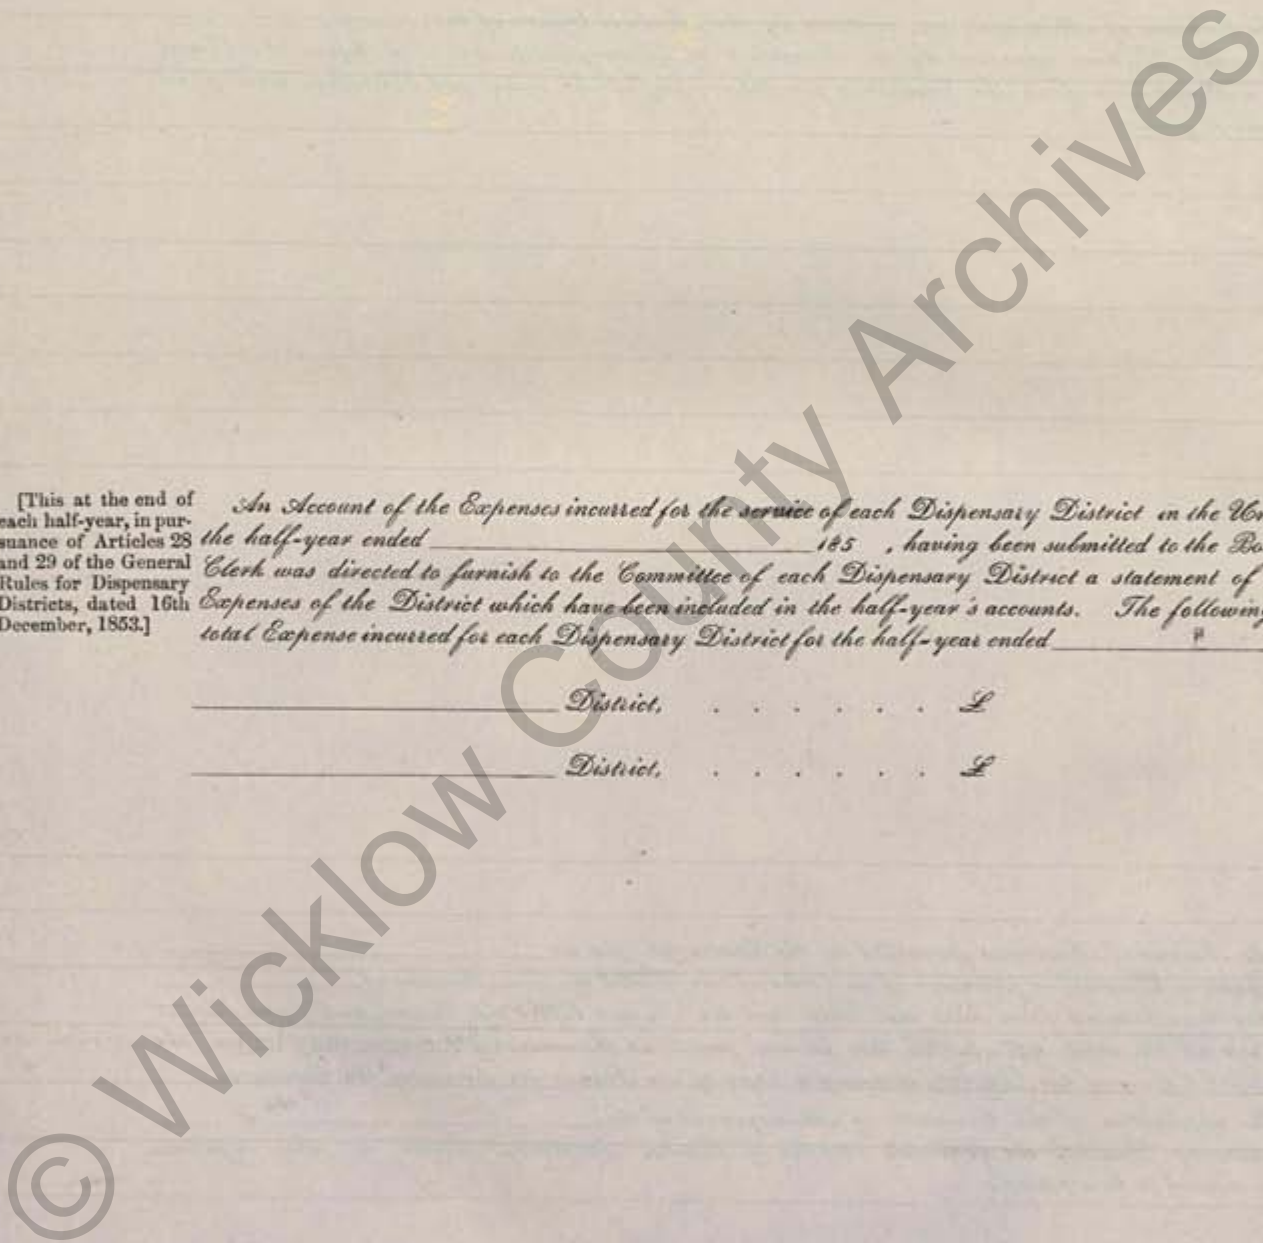 [This at the end of
each half-year, in pur-
suance of Articles 28
and 29 of the General
Rules for Dispensary
Districts, dated 16th
December, 1853.]
An Account of the Expenses incurred for the service of each Dispensary District in the Un
the half-year ended 185 , having been submitted to the Bo
Clerk was directed to furnish to the Committee of each Dispensary District a statement of
Expenses of the District which have been included in the half-year's accounts. The following
total Expense incurred for each Dispensary District for the half-year ended
District, . . . . . . £
District, . . . . . . £
© Wicklow County Archives